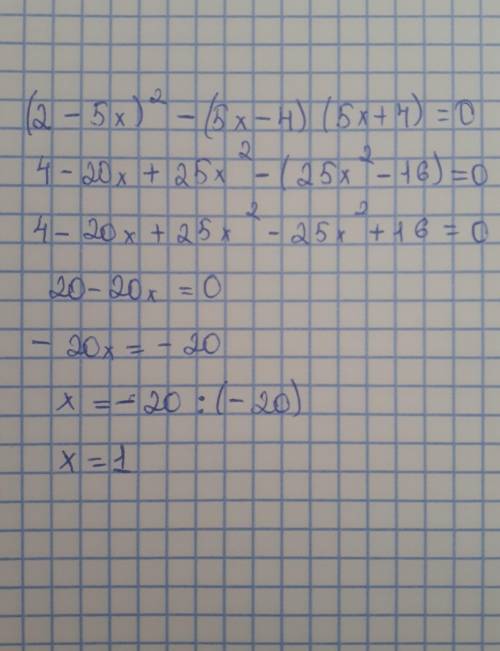 (2 - 5x)² - (5x - 4) (5x + 4) = 0
4 - 20x + 25x² - (25x² - 16) = 0
4 - 20x + 25x² - 25x² + 16 = 0
20 - 20x = 0
- 20x = - 20
x = - 20 : (- 20)
x = 1